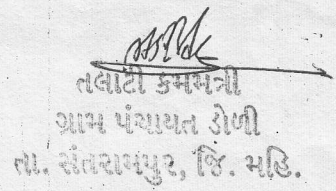 તલાટી કમમંત્રી
ગ્રામ પંચાયત ડોળી
તા. સંતરામપુર, જિ. મહિ.